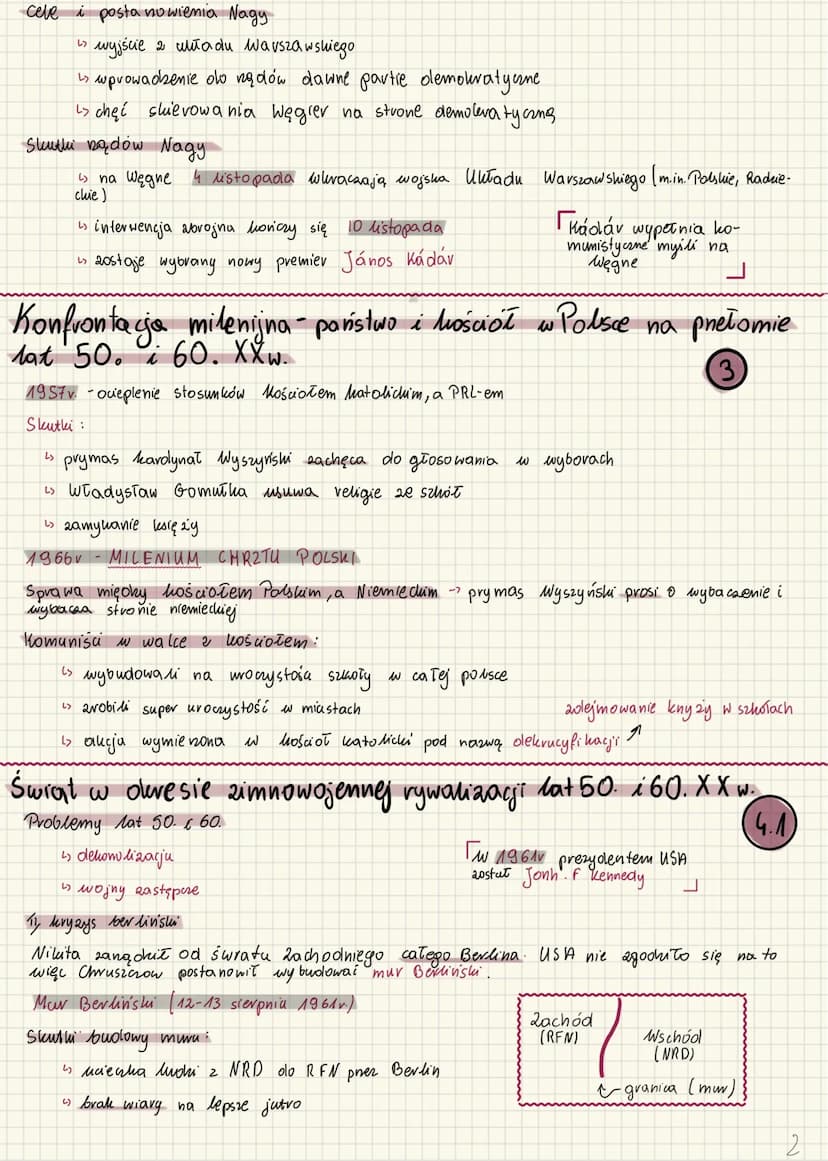 Cele i postanowienia Nagy
↳ wyjście z układu Warszawskiego
↳ wprowadzenie do rządów dawne partie demokratyczne
↳ chęć skierowania Węgier na strone demokratyczną
Skutki rządów Nagy
↳ na Węgne 4 listopada wkraczają wojska Układu Warszawskiego (m.in. Polskie, Radzie-
ckie)
↳ interwencja zbrojna kończy się 10 listopada
↳ zostaje wybrany nowy premier János Kádár
Kádár wypełnia ko-
munistyczne myśli na
Węgne
Konfrontacja milenijna - państwo i kościół w Polsce na przełomie
lat 50. i 60. XXw.
3
1957r. - ocieplenie stosunków kościołem katolickim, a PRL-em
Skutki:
↳ prymas kardynał Wyszyński zachęca do głosowania w wyborach
↳ Władysław Gomułka usuwa religie ze szkół
↳ zamykanie księży
1966r - MILENIUM CHRZTU POLSKI
Sprawa między kościołem Polskim, a Niemieckim → prymas Wyszyński prosi o wybaczenie i
wybacza stronie niemieckiej
Komuniści w walce z kościołem:
↳ wybudowali na uroczystości szkoły w całej polsce
↳ zrobili super uroczystość w miastach
zdejmowanie krzyży w szkołach
↳ akcja wymierzona w kościół katolicki pod nazwą dekrucyfikacji
Świat w okresie zimnowojennej rywalizacji lat 50. i 60. XX w.
4.1
Problemy lat 50. i 60.
↳ dekonolizacja
↳ wojny zastępcze
W 1961r prezydentem USA
został Jonh. F Kennedy
II kryzys berliński
Nikita zarządził od świata Zachodniego całego Berlina. USA nie zgodziło się na to
więc Chruszczow postanowił wybudować mur Berliński.
Mur Berliński (12-13 sierpnia 1961r.)
Skutki budowy muru:
↳ ucieczka ludzi z NRD do RFN przez Berlin
↳ brak wiary na lepsze jutro
Zachód
(RFN)
Wschód
(NRD)
granica (mur)
2